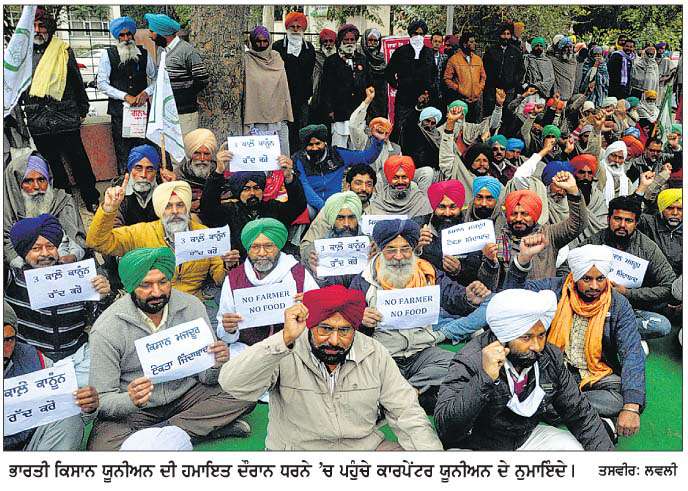 3 ਕਾਲ਼ੇ ਕਾਨੂੰਨ
ਰੱਦ ਕਰੋ
3 ਕਾਲ਼ੇ ਕਾਨੂੰਨ
ਰੱਦ ਕਰੋ
3 ਕਾਲ਼ੇ ਕਾਨੂੰਨ
ਰੱਦ ਕਰੋ
ਏਕਤਾ ਜਿੰਦਾਬਾਦ
3 ਕਾਲ਼ੇ ਕਾਨੂੰਨ
ਰੱਦ ਕਰੋ
NO FARMER
NO FOOD
NO FARMER
NO FOOD
ਕਿਸਾਨ ਮਜਦੂਰ
ਏਕਤਾ ਜਿੰਦਾਬਾਦ
ਕਾਲ਼ੇ ਕਾਨੂੰਨ
ਰੱਦ ਕਰੋ
ਭਾਰਤੀ ਕਿਸਾਨ ਯੂਨੀਅਨ ਦੀ ਹਮਾਇਤ ਦੌਰਾਨ ਧਰਨੇ 'ਚ ਪਹੁੰਚੇ ਕਾਰਪੇਂਟਰ ਯੂਨੀਅਨ ਦੇ ਨੁਮਾਇੰਦੇ। ਤਸਵੀਰ: ਲਵਲੀ